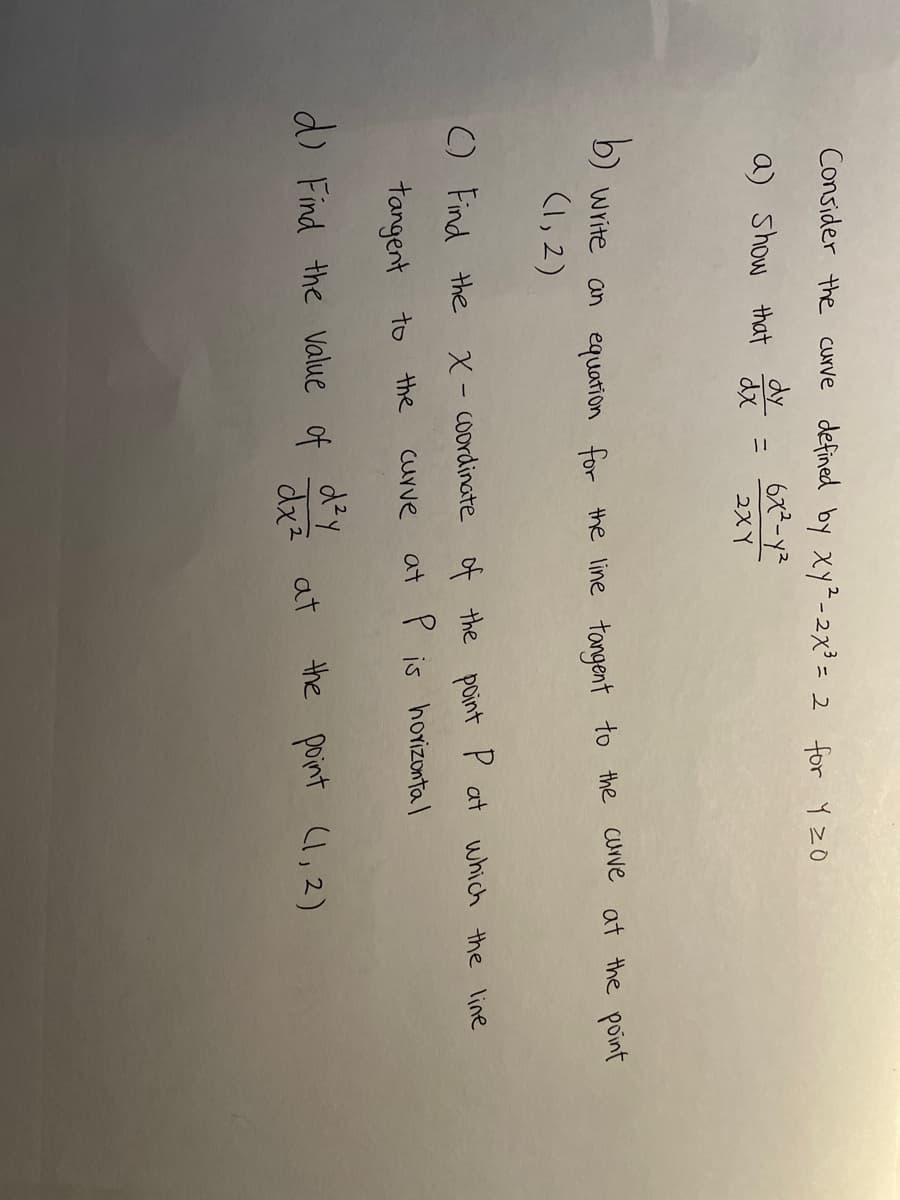 Consider the curve defined by xy²-2x³ = 2 for y≥0
a) Show that dy/dx = (6x²-y²)/(2xy)
b) write an equation for the line tangent to the curve at the point
(1, 2)
c) Find the x-coordinate of the point P at which the line
tangent to the curve at P is horizontal
d) Find the value of d²y/dx² at the point (1, 2)